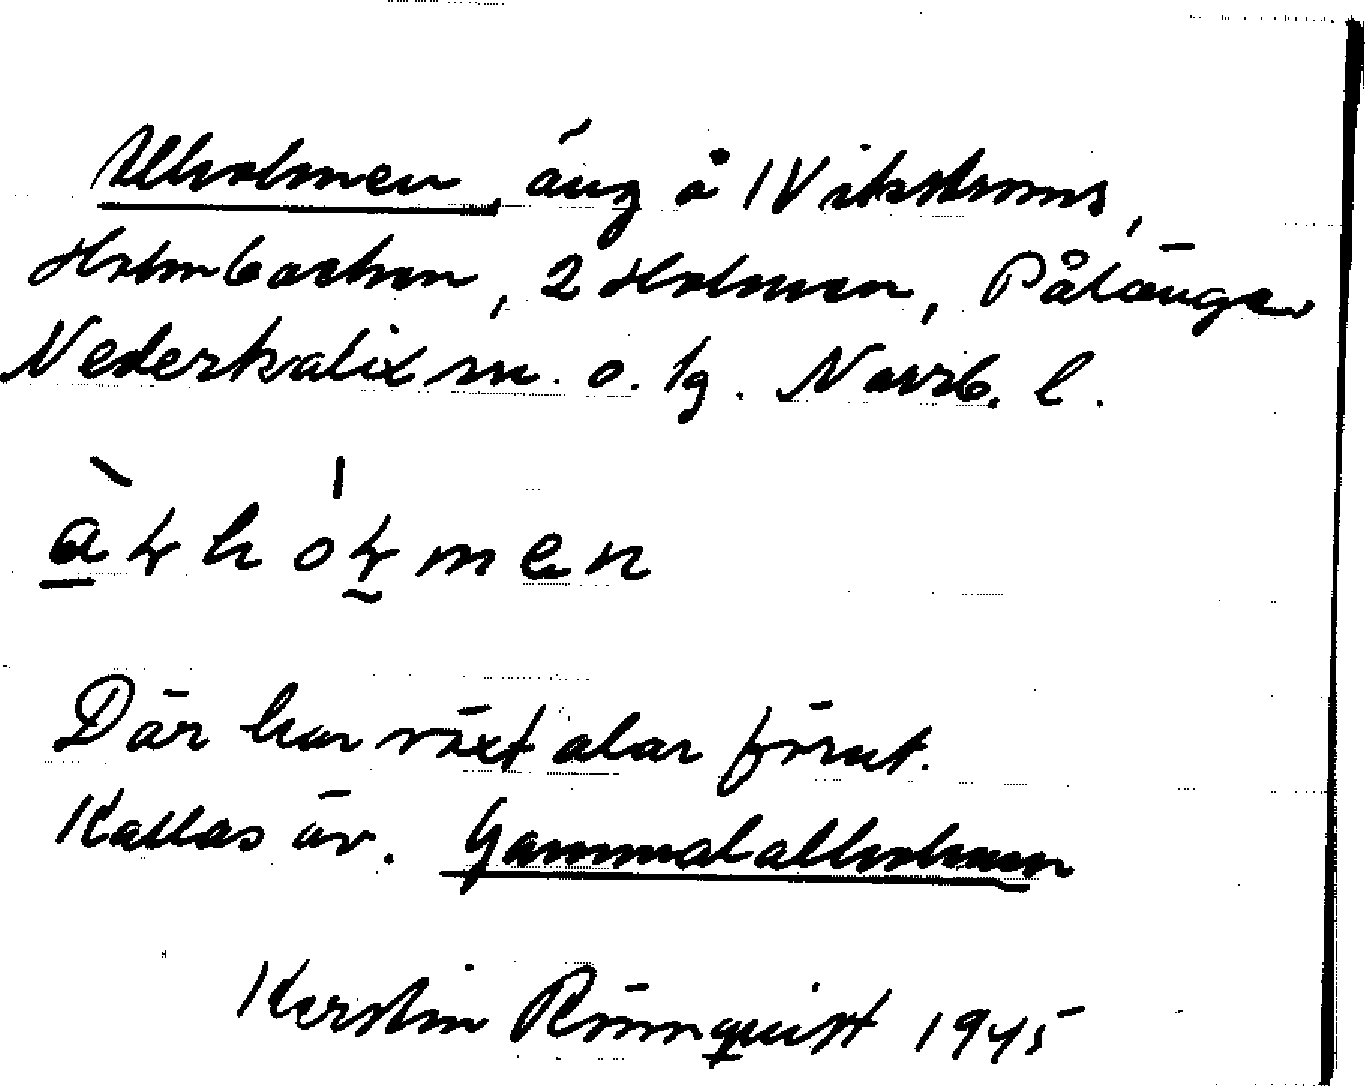 Alholmen, äng å 1 Vikströms,
Holmbacken, 2 Holmen, Pålänge
Nederkalix sn. o. tg. Norrb. l.
Där har växt alar förut.
Kallas äv. Gammalalholmen
Kerstin Rönnquist 1945